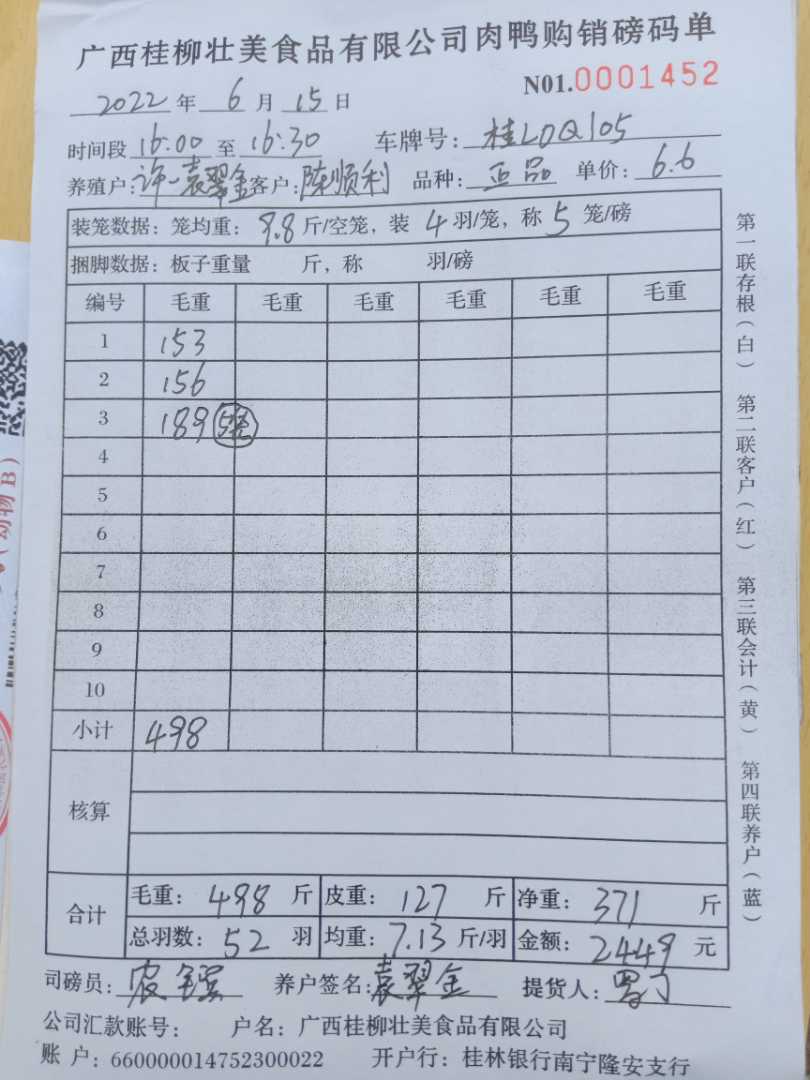 广西桂柳壮美食品有限公司肉鸭购销磅码单
N01.0001452
2022 年 6 月 15 日
时间段 16:00 至 16:30 车牌号: 桂LDQ105
养殖户: 许一袁翠金 客户: 陈顺利 品种: 正品 单价: 6.6
装笼数据: 笼均重: 9.8 斤/空笼, 装 4 羽/笼, 称 5 笼/磅
捆脚数据: 板子重量 斤, 称 羽/磅
编号 毛重 毛重 毛重 毛重 毛重 毛重
1 153
2 156
3 189
4
5
6
7
8
9
10
小计 498
核算
合计
毛重: 498 斤 皮重: 127 斤 净重: 371 斤
总羽数: 52 羽 均重: 7.13 斤/羽 金额: 2449 元
司磅员: 农 养户签名: 袁翠金 提货人:
公司汇款账号: 户名: 广西桂柳壮美食品有限公司
账 户: 660000014752300022 开户行: 桂林银行南宁隆安支行
第一联存根(白) 第二联客户(红) 第三联会计(黄) 第四联养户(蓝)
动物B)